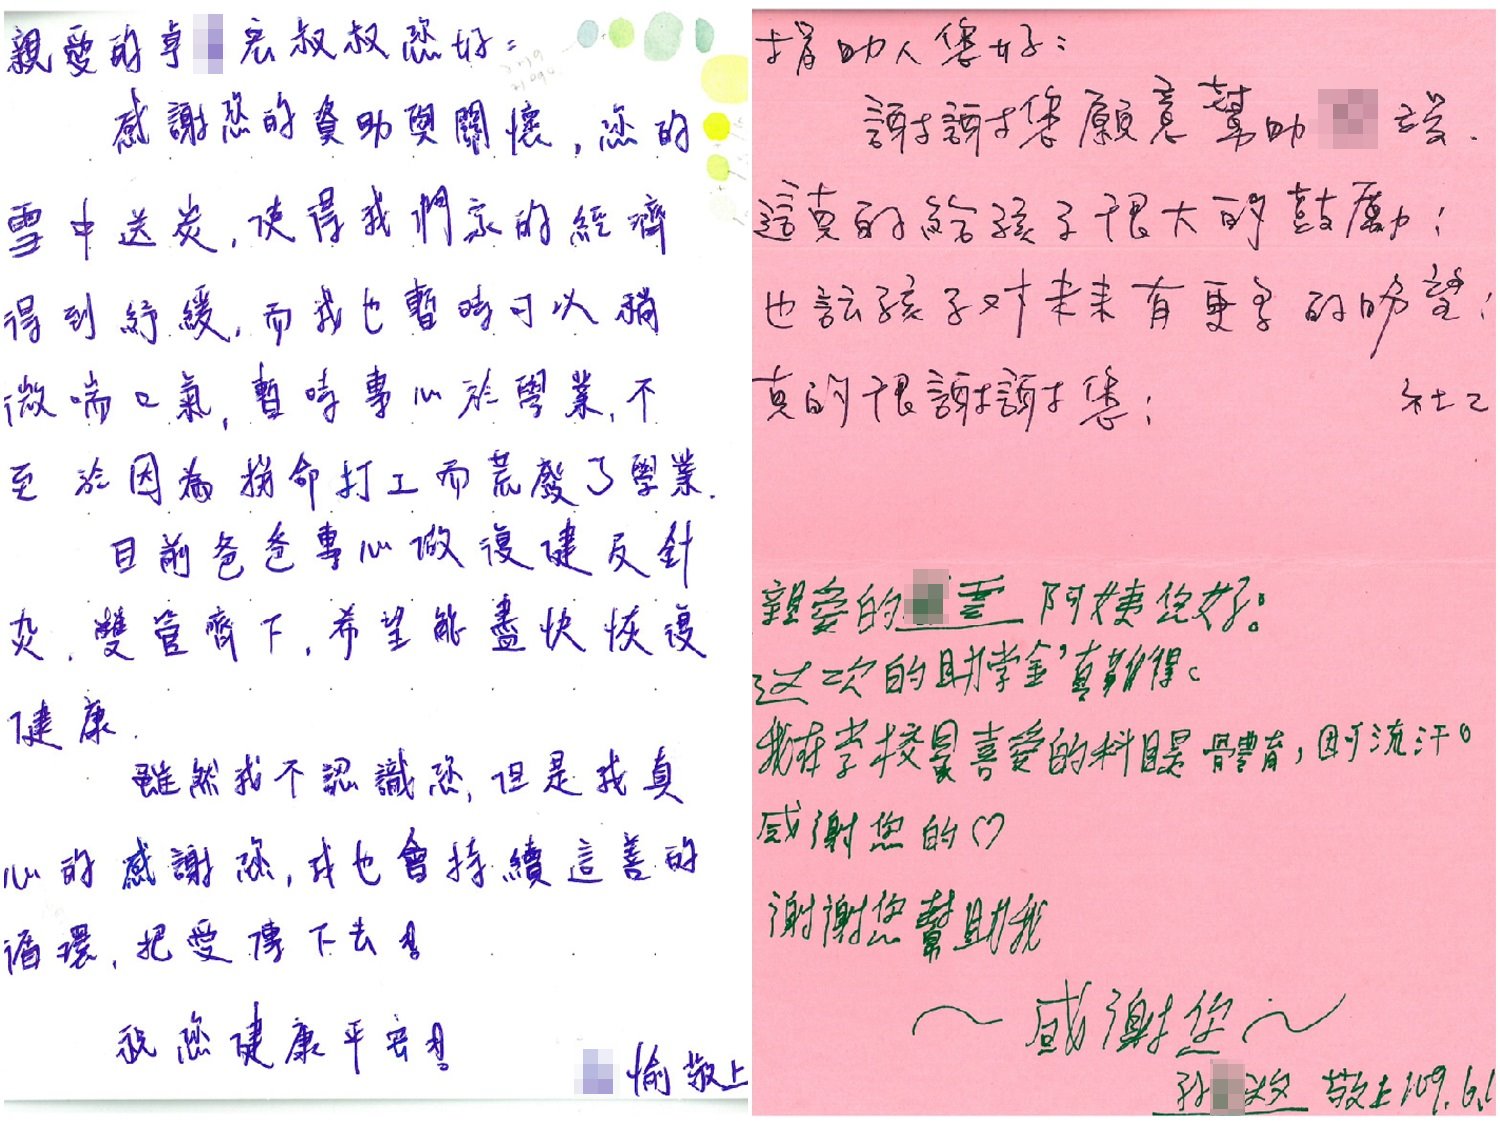 親愛的卓 宏叔叔您好:
感謝您的資助與關懷,您的
雪中送炭,使得我們家的經濟
得到紓緩,而我也暫時可以稍
微喘口氣,暫時專心於學業,不
至於因為拚命打工而荒廢了學業.
目前爸爸專心做復健及針
灸,雙管齊下,希望能盡快恢復
健康.
雖然我不認識您,但是我真
心的感謝您,我也會持續這善的
循環,把愛傳下去!
祝您健康平安!
愉敬上
捐助人您好:
謝謝您願意幫助
這真的給孩子很大的鼓勵;
也讓孩子對未來有更多的盼望;
真的很謝謝您;
社工
親愛的 雲 阿姨您好:
这次的助学金,真難得。
我在学校最喜愛的科目是體育,因可流汗。
感謝您的♡
谢谢您幫助我
~感謝您~
孙 敬上109.6.1